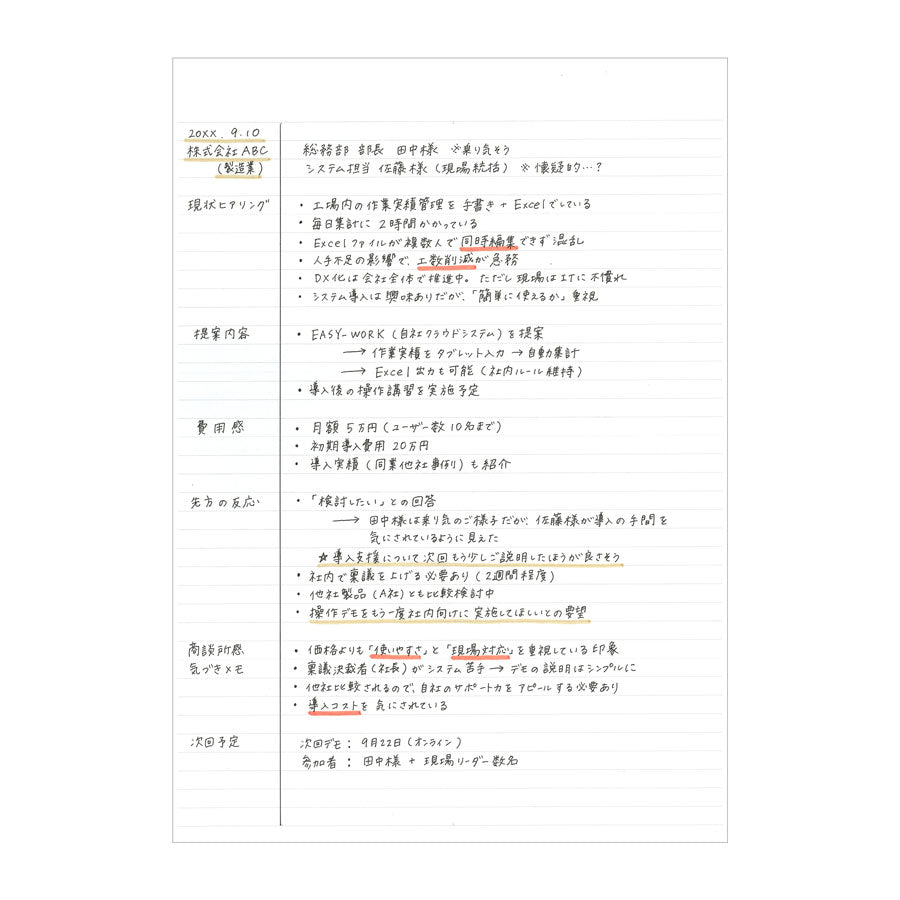 20XX. 9.10
株式会社ABC 総務部 部長 田中様 ※乗り気そう
(製造業) システム担当 佐藤様(現場統括) ※懐疑的…?
現状ヒアリング ・工場内の作業実績管理を手書き+Excelでしている
・毎日集計に2時間かかっている
・Excelファイルが複数人で同時編集できず混乱
・人手不足の影響で、工数削減が急務
・DX化は会社全体で推進中。ただし現場はITに不慣れ
・システム導入は興味ありだが、「簡単に使えるか」重視
提案内容 ・EASY-WORK(自社クラウドシステム)を提案
→ 作業実績をタブレット入力→自動集計
→ Excel出力も可能(社内ルール維持)
・導入後の操作講習を実施予定
費用感 ・月額5万円(ユーザー数10名まで)
・初期導入費用20万円
・導入実績(同業他社事例)も紹介
先方の反応 ・「検討したい」との回答
→ 田中様は乗り気のご様子だが、佐藤様が導入の手間を
気にされているように見えた
☆導入支援について次回もう少しご説明したほうが良さそう
・社内で稟議を上げる必要あり(2週間程度)
・他社製品(A社)とも比較検討中
・操作デモをもう一度社内向けに実施してほしいとの要望
商談所感 ・価格よりも「使いやすさ」と「現場対応」を重視している印象
気づきメモ ・稟議決裁者(社長)がシステム苦手→デモの説明はシンプルに
・他社比較されるので、自社のサポート力をアピールする必要あり
・導入コストを気にされている
次回予定 次回デモ:9月22日(オンライン)
参加者:田中様+現場リーダー数名